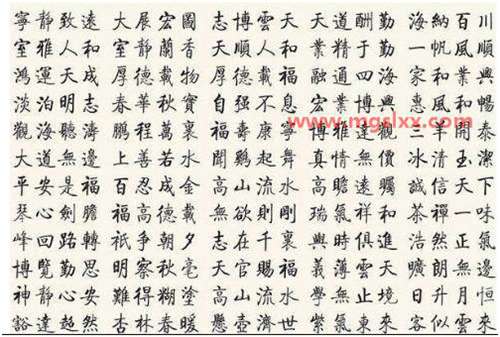 寧靜致遠 大展宏圖 志博雲天 天道酬勤 海納百川
室雅人和 室靜蘭香 人和 業精于勤 一帆風順
鴻運天成 厚德載物 厚德載福 融通四海 家和業興
淡泊明志 春華秋實 自強不息 宏業興家 惠風和暢
觀海聽濤 鵬程萬裏 福壽康寧 博雅達觀 三羊開泰
大道無邊 上善若水 聞鷄起舞 真情無價 冰清玉潔
平安是福 百忍成金 高山流水 高瞻遠矚 誠信天下
琴心劍膽 福高德載 無欲則剛 瑞氣祥和 茶禪一味
峰回路轉 祇爭朝夕 志在千裏 與時俱進 浩然正氣
博覽勤思 明察秋毫 天官賜福 義薄雲天 曠朗無邊
神靜心安 難得糊塗 高山流水 學無止境 日升月恒
豁達超然 杏林春暖 懸壺濟世 紫氣東來 客似雲來
www.mgslxx.com